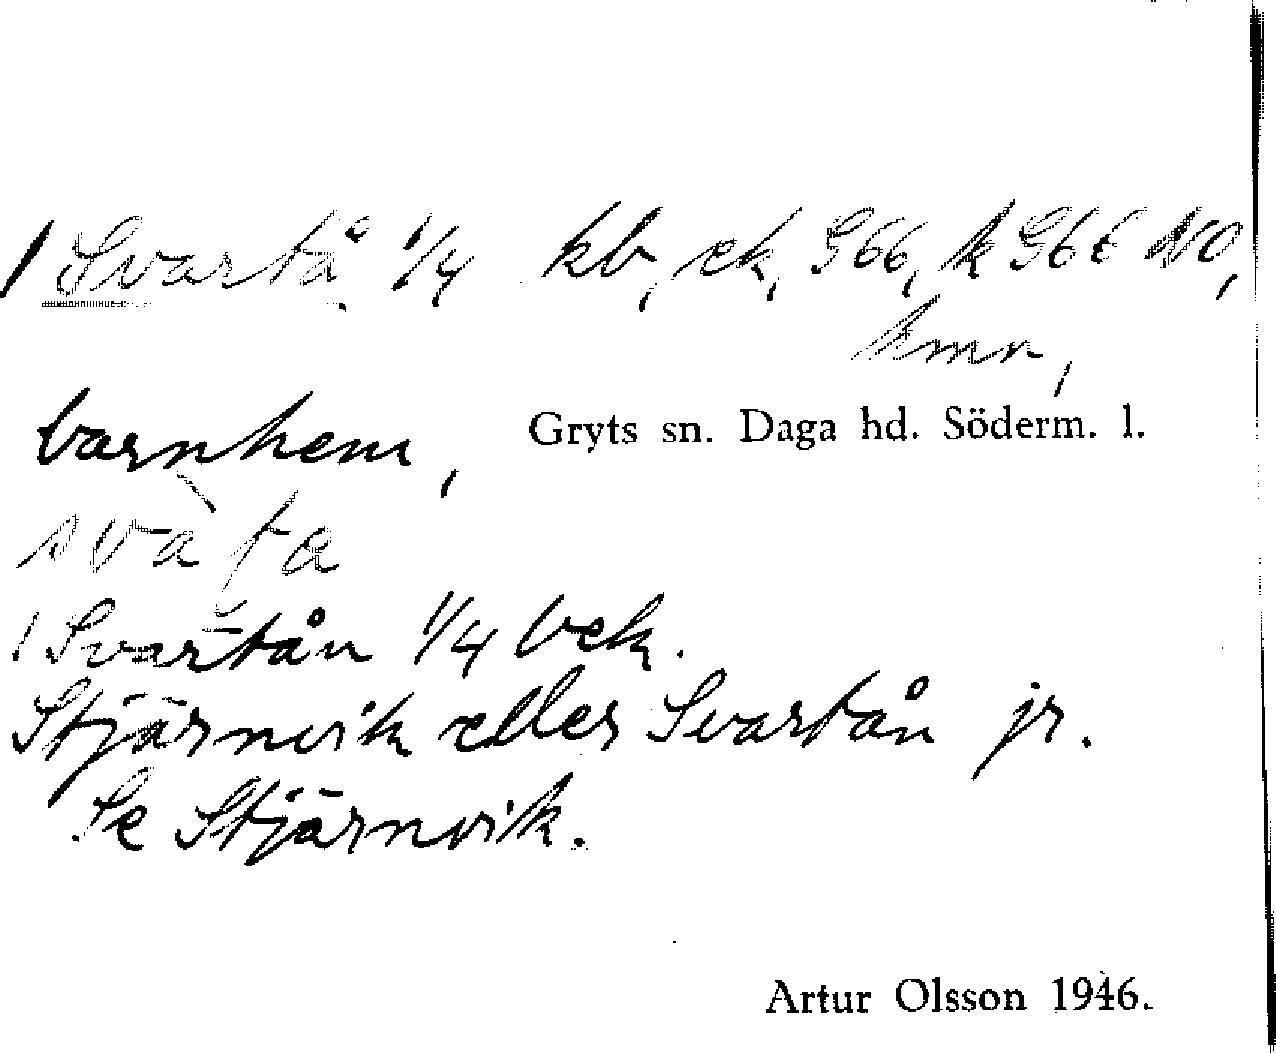 1 Svartå 1/4 kb, ek, G66, k G6t NO,
kmr,
barnhem, Gryts sn. Daga hd. Söderm. l.
svàta
1 Svartån 1/4 bek.
Stjärnvik eller Svartån jr.
Se Stjärnvik.
Artur Olsson 1946.